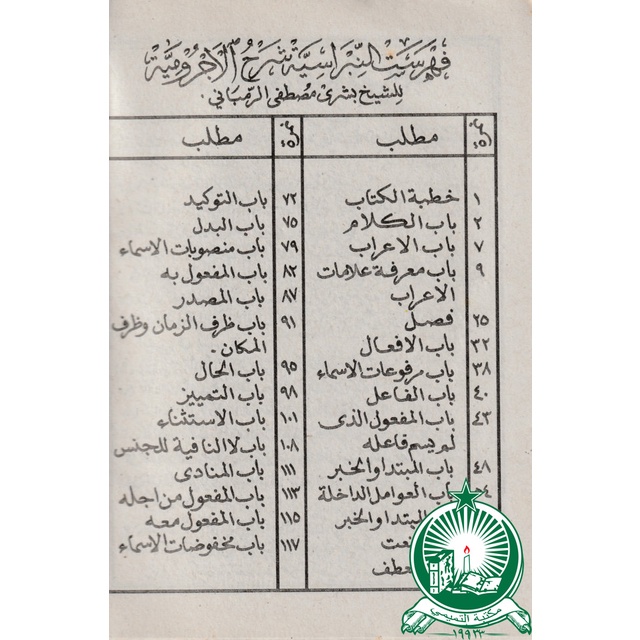 فهرست النبراسية شرح الاجرومية
للشيخ بشرى مصطفى الرمباني.
مطلب
١ خطبة الكتاب
٢ باب الكلام
٧ باب الاعراب
٩ باب معرفة علامات
الاعراب
٢٥ فصل
٣٢ باب الافعال
٣٨ باب مرفوعات الاسماء
٤٠ باب الفاعل
٤٣ باب المفعول الذى
لم يسم فاعله
٤٨ باب المبتدا والخبر
باب العوامل الداخلة
المبتدا والخبر
مطلب
٧٢ باب التوكيد
٧٥ باب البدل
٧٩ باب منصوبات الاسماء
٨٢ باب المفعول به
٨٧ باب المصدر
٩١ باب ظرف الزمان وظرف
المكان.
٩٥ باب الحال
٩٨ باب التمييز
١٠١ باب الاستثناء
١٠٨ باب لا النافية للجنس
١١١ باب المنادى
١١٣ باب المفعول من اجله
١١٥ باب المفعول معه
١١٧ باب مخفوضات الاسماء
مكتبة التميمي